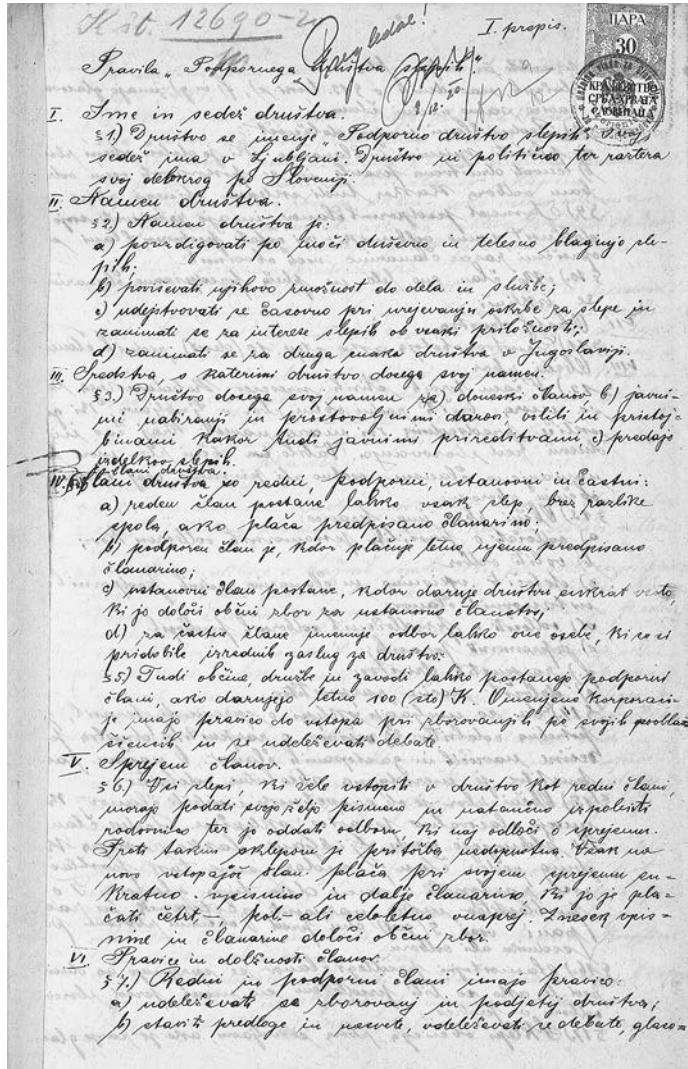 K št. 12690-2
Pregledal!
I. prepis.
ПАРА
30
КРАЉЕВСТВО
СРБА ХРВАТА
СЛОВЕНАЦА
Pravila „Podpornega društva slepih“.
9/12. 20
I. Ime in sedež društva.
§1.) Društvo se imenuje „Podporno društvo slepih“ svoj
sedež ima v Ljubljani. Društvo ni politično ter razteza
svoj delokrog po Sloveniji.
II. Namen društva.
§2.) Namen društva je:
a) povzdigovati po moči duševno in telesno blaginjo sle-
pih;
b) poviševati njihovo zmožnost do dela in službe;
c) udejstvovati se časovno pri urejevanju oskrbe za slepe in
zanimati se za interese slepih ob vsaki priložnosti;
d) zanimati se za druga enaka društva v Jugoslaviji.
III. Sredstva, s katerimi društvo dosega svoj namen.
§3.) Društvo dosega svoj namen z a) doneski članov b) javni-
mi nabiranji in prostovoljnimi darovi, volili in pristoj-
binami kakor tudi javnimi prireditvami, c) prodajo
izdelkov slepih.
Člani društva.
IV. §4) Člani društva so redni, podporni, ustanovni in častni:
a) reden član postane lahko vsak slep, brez razlike
spola, ako plača predpisano članarino;
b) podporen član je, kdor plačuje letno njemu predpisano
članarino;
c) ustanovni član postane, kdor daruje društvu enkrat vsoto,
ki jo določi občni zbor za ustanovno članstvo;
d) za častne člane imenuje odbor lahko one osebe, ki so si
pridobile izrednih zaslug za društvo.
§5) Tudi občine, družbe in zavodi lahko postanejo podporni
člani, ako darujejo letno 100 (sto) K. Omenjene korporaci-
je imajo pravico do vstopa pri zborovanjih po svojih pooblaš-
čencih in se udeleževati debate.
V. Sprejem članov.
§6.) Vsi slepi, ki žele vstopiti v društvo kot redni člani,
morajo podati svojo željo pismeno in natančno izpolniti
rodovnico ter jo oddati odboru, ki naj odloči o sprejemu.
Proti takim sklepom je pritožba nedopustna. Vsak na
novo vstopajoči član plača pri svojem sprejemu en-
kratno vpisnino in dalje članarino, ki jo je pla-
čati četrt,-, pol- ali celoletno vnaprej. Znesek vpis-
nine in članarine določi občni zbor.
VI. Pravice in dolžnosti članov.
§7.) Redni in podporni člani imajo pravico:
a) udeleževati se zborovanj in podjetij društva;
b) staviti predloge in nasvete, udeleževati se debate, glaso-